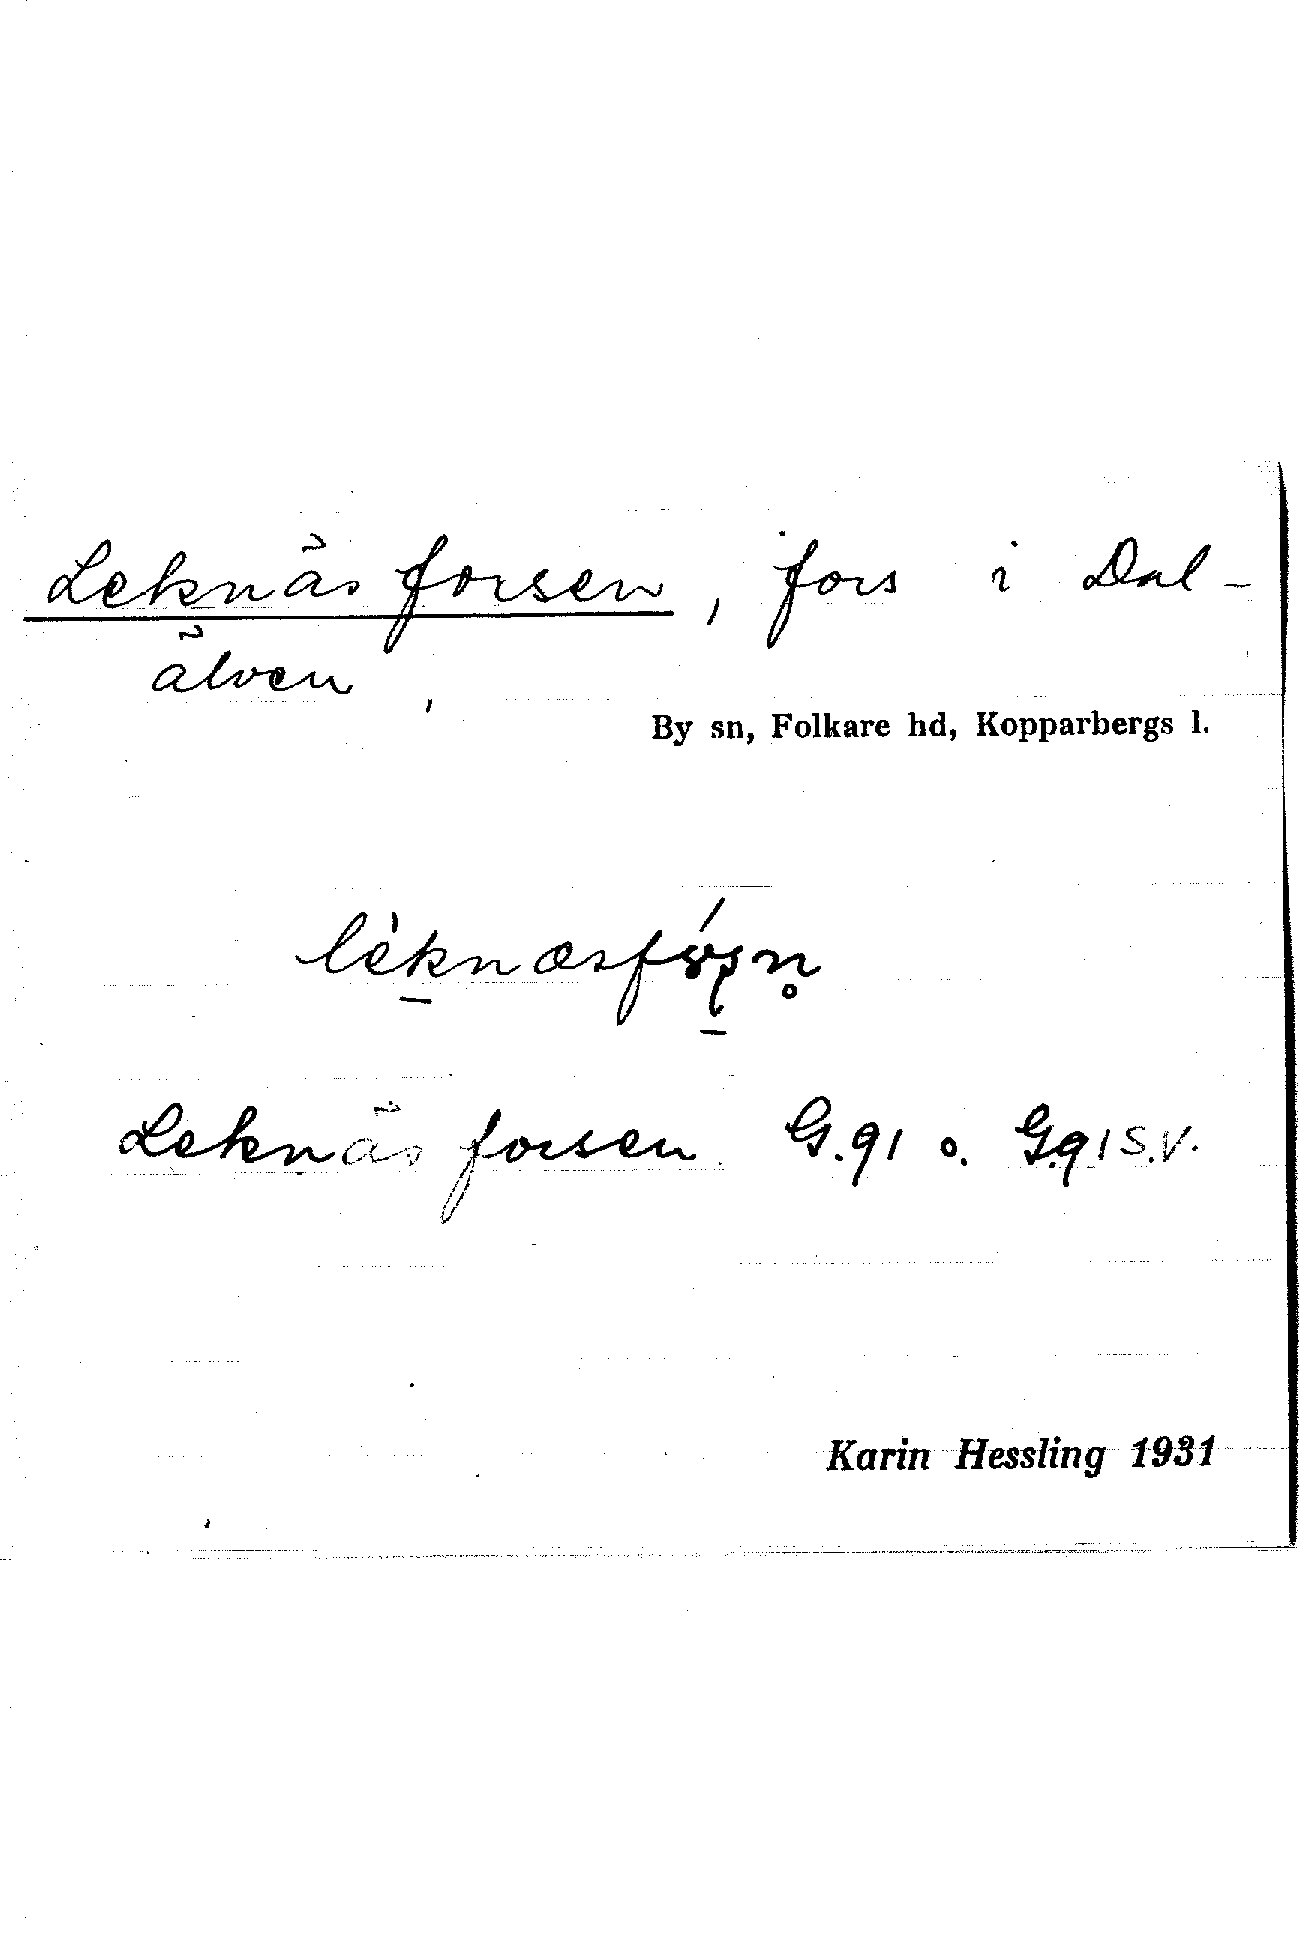 Leknäsforsen, fors i Dal-
älven.
By sn, Folkare hd, Kopparbergs l.
Leknäsforsen G.91 o. G.91 S.V.
Karin Hessling 1931